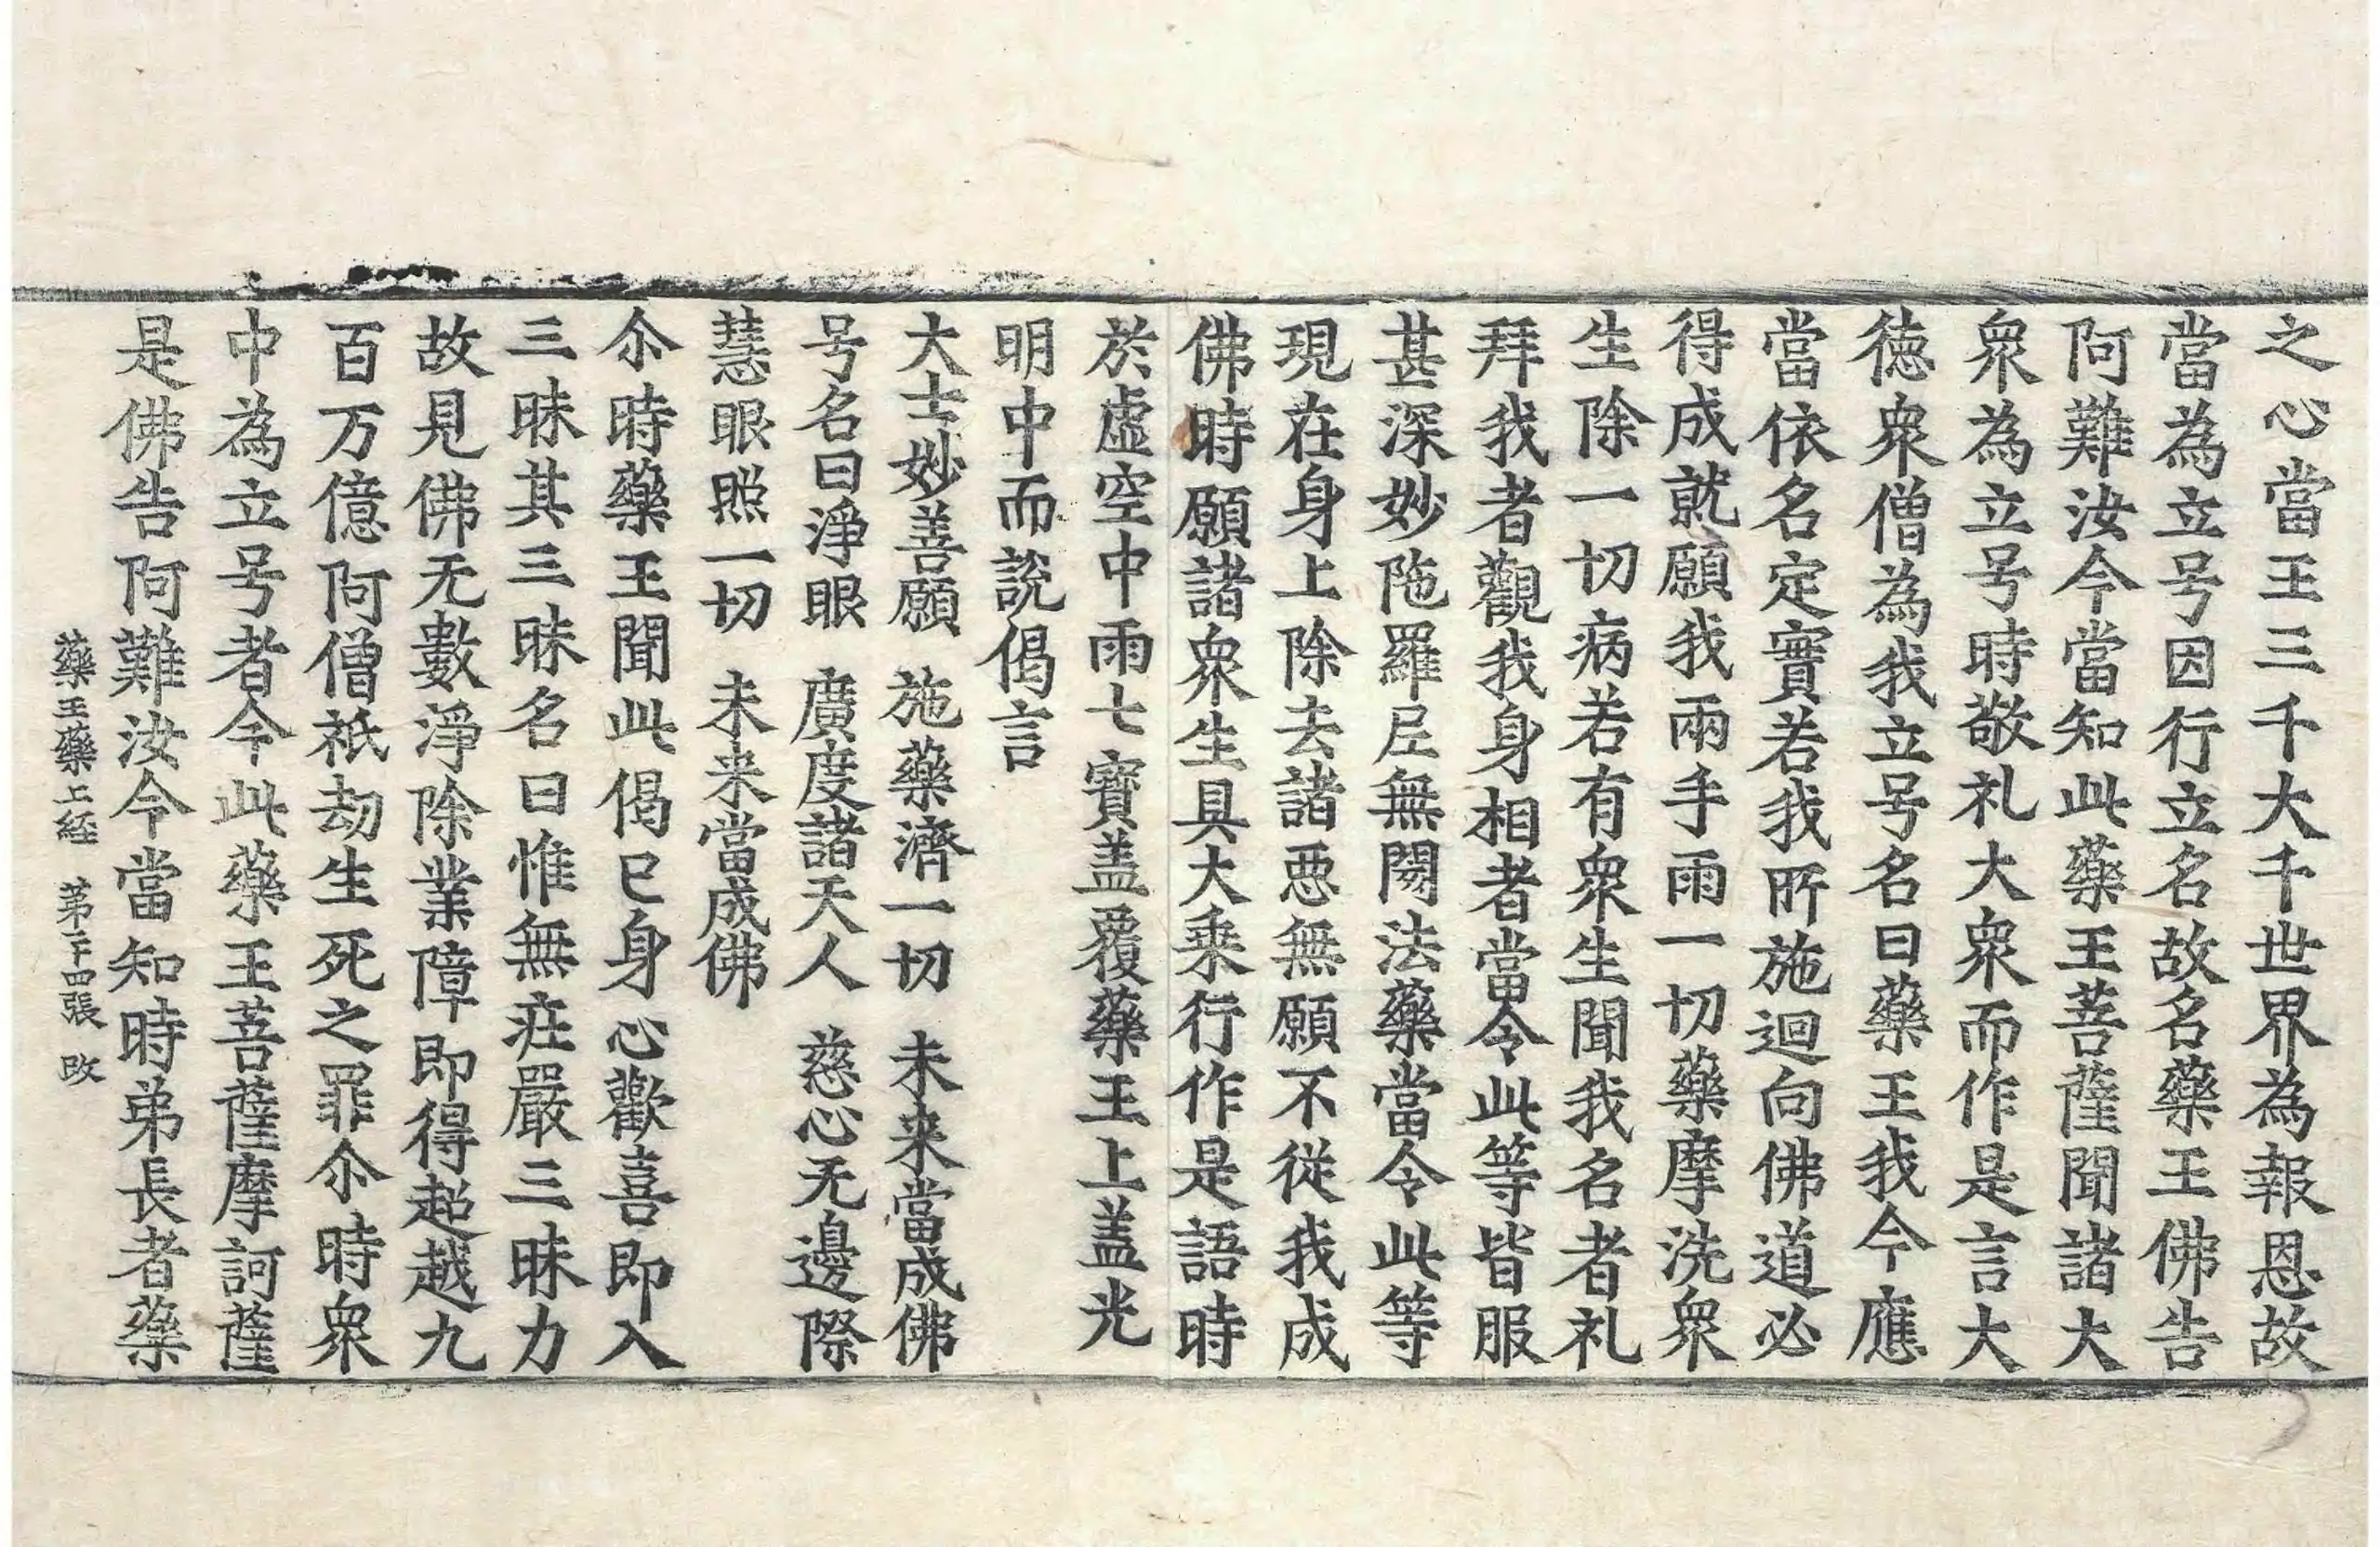 之心當王三千大千世界為報恩故
當為立号因行立名故名藥王佛告
阿難汝今當知此藥王菩薩聞諸大
眾為立号時敬礼大眾而作是言大
徳眾僧為我立号名曰藥王我今應
當依名定實若我所施迴向佛道必
得成就願我兩手雨一切藥摩洗眾
生除一切病若有眾生聞我名者礼
拜我者觀我身相者當令此等皆服
甚深妙陁羅尼無閡法藥當令此等
現在身上除去諸惡無願不從我成
佛時願諸眾生具大乗行作是語時
於虛空中雨七寶盖覆藥王上盖光
明中而說偈言
大士妙善願　施藥濟一切　未来當成佛
号名曰淨眼　廣度諸天人　慈心无邊際
慧眼照一切　未来當成佛
尒時藥王聞此偈已身心歡喜即入
三昧其三昧名曰惟無莊嚴三昧力
故見佛无數淨除業障即得超越九
百万億阿僧祇劫生死之罪尒時眾
中為立号者今此藥王菩薩摩訶薩
是佛告阿難汝今當知時弟長者藥
藥王藥上經　苐十四張　改